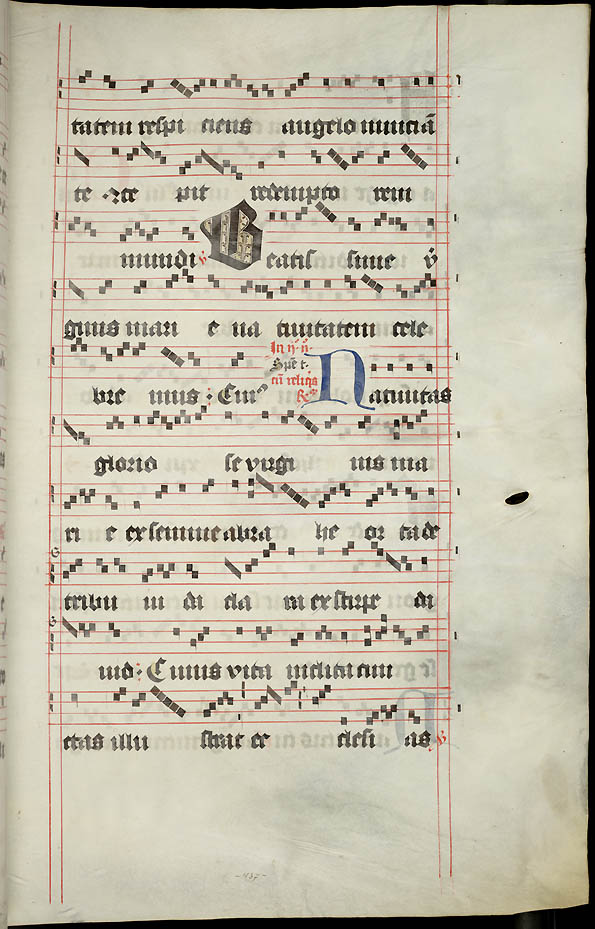 tatem respi ciens angelo nunciā
te con ce pit redempto rem
mundi ℣ Beatis sime v̄
ginis mari e na tiuitatem cele
bre mus : Cui9
Natiuitas
glorio se virgi nis ma
ri e ex semine abra he or ta de
tribu iu da cla ra ex stirpe da
uid : Cuius vita inclita cun
ctas illu strat ec clesi as ℣